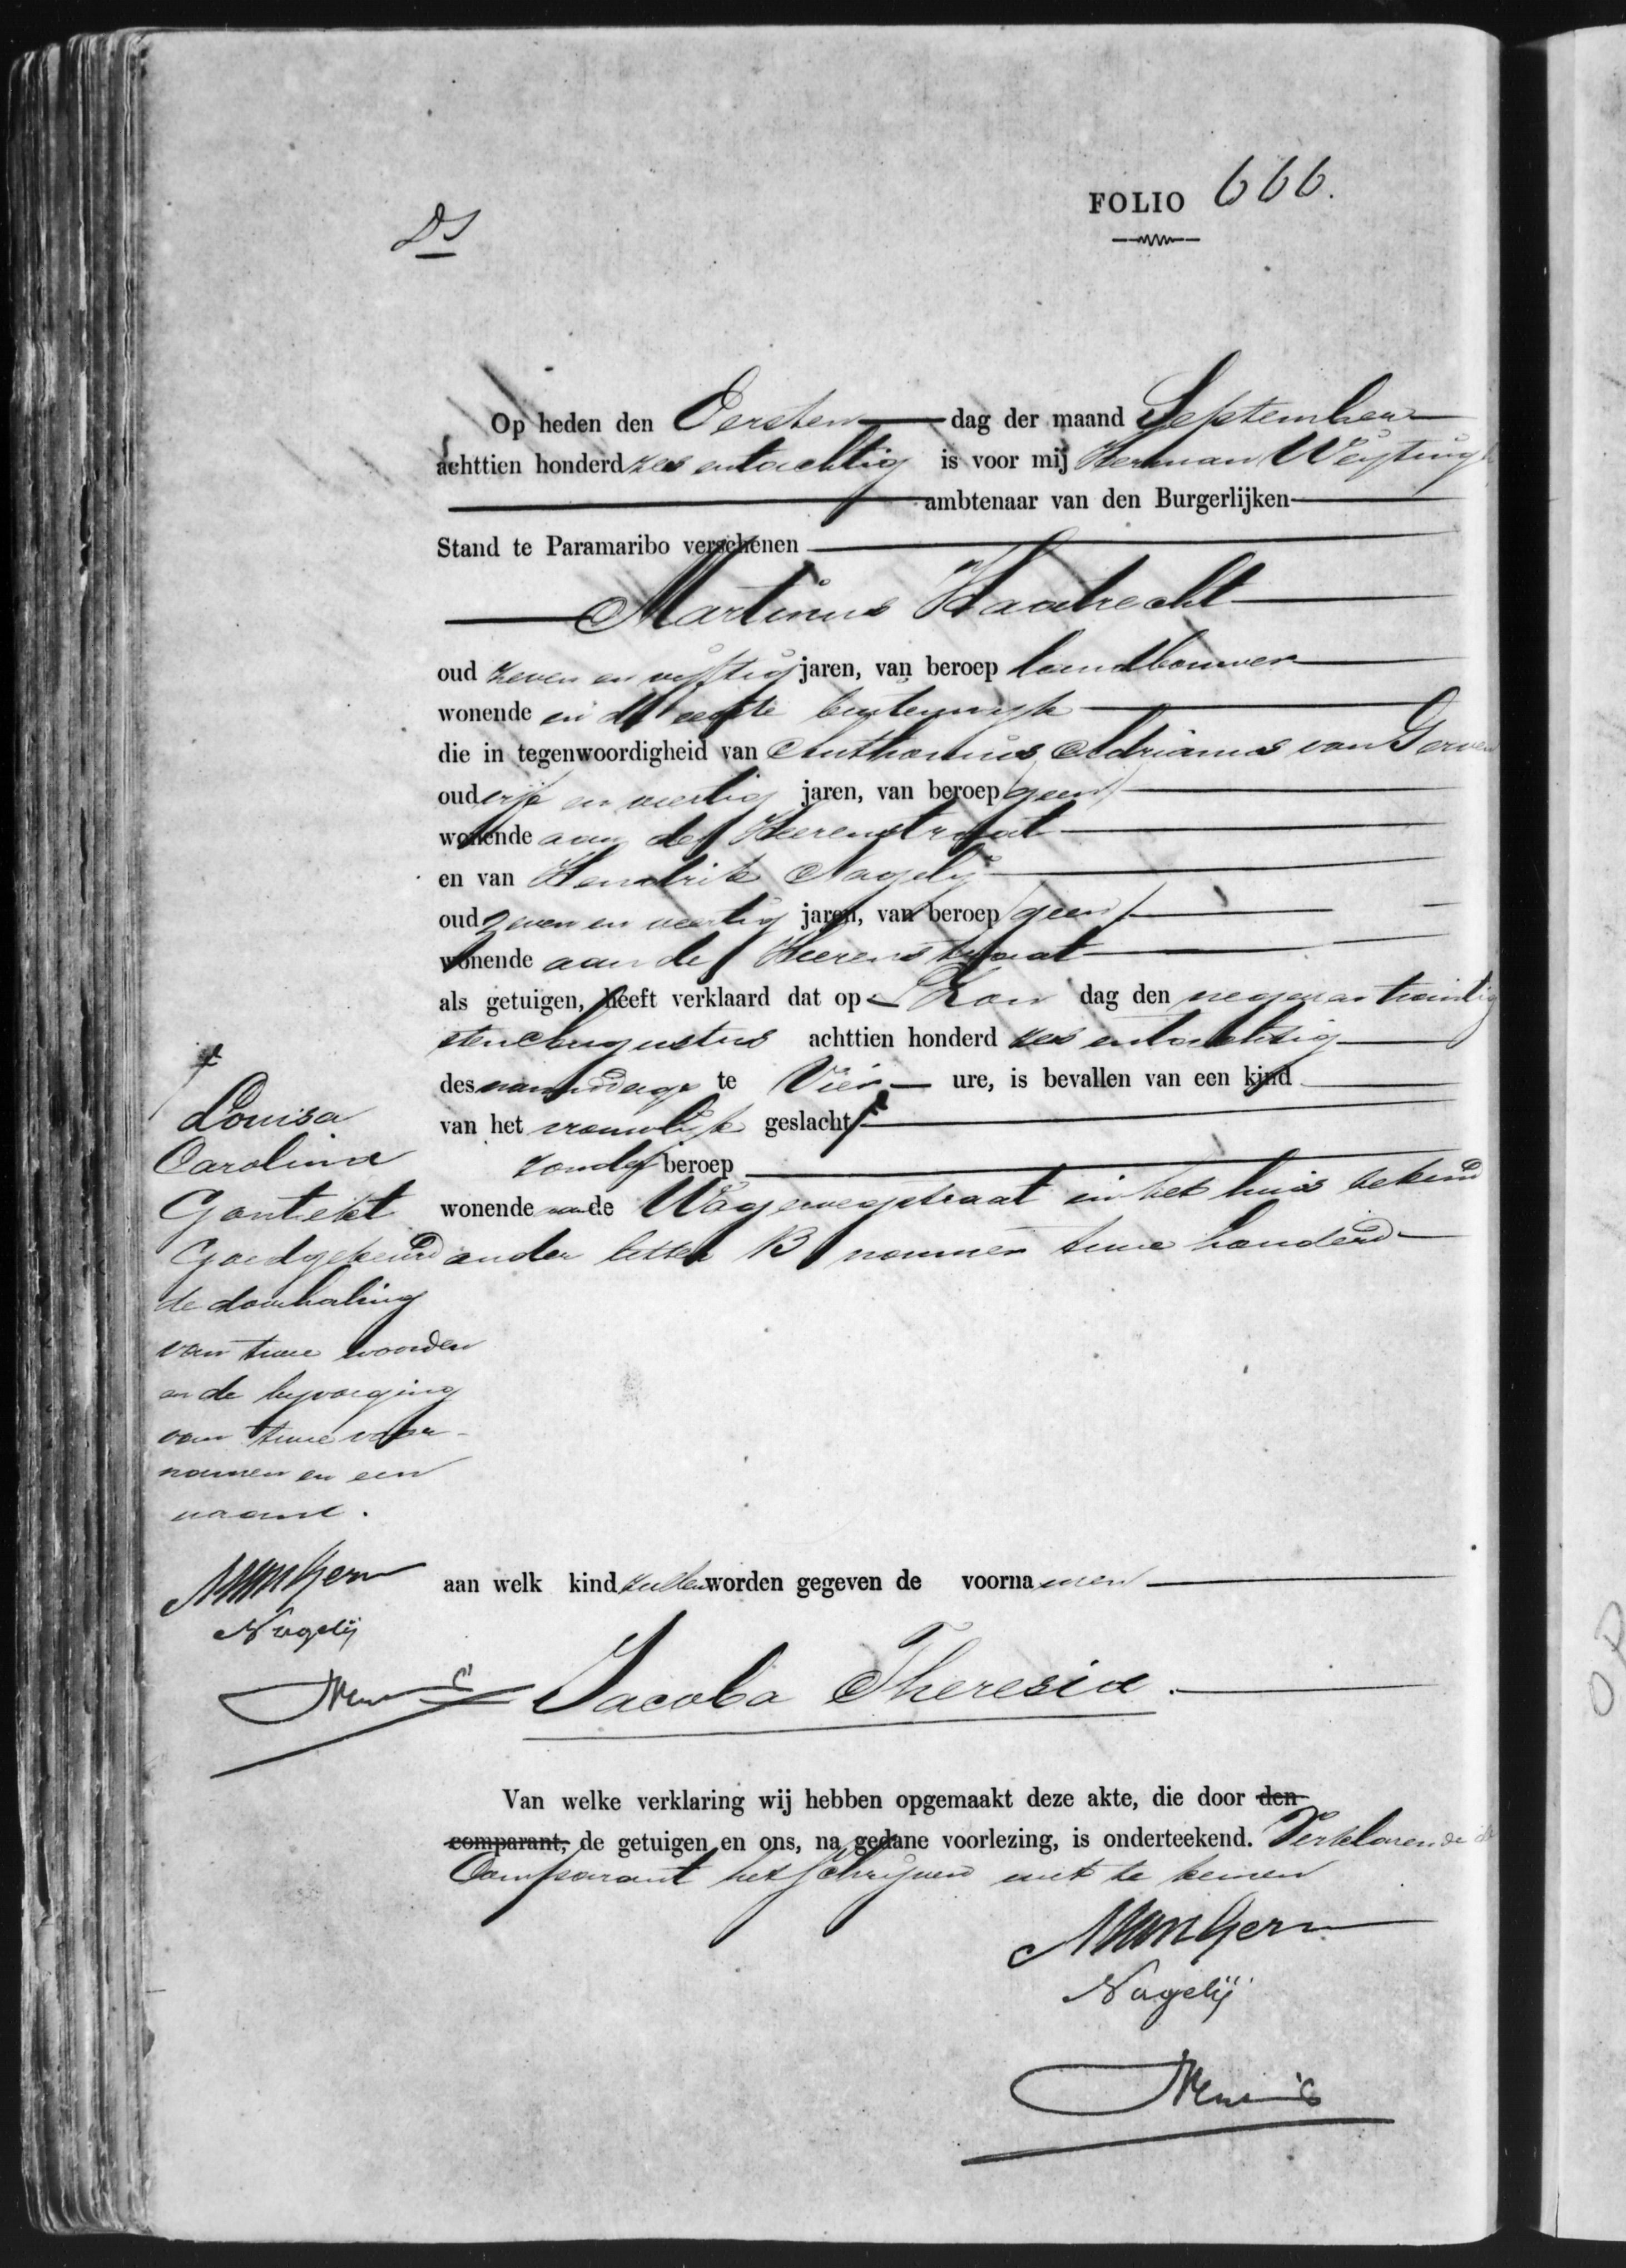 FOLIO 666.
Op heden den Eersten dag der maand September
achttien honderd zes en tachtig is voor mij Herman Weijtingh
ambtenaar van den Burgerlijken
Stand te Paramaribo verschenen
Martinus Haatrecht
oud zeven en vijftig jaren, van beroep landbouwer
wonende in de eerste buitenwijk
die in tegenwoordigheid van Anthonius Adrianus van Gerven
oud vijf en veertig jaren, van beroep geen
wonende aan de Heerenstraat
en van Hendrik Nagelij
oud zeven en veertig jaren, van beroep geen
wonende aan de Heerenstraat
als getuigen, heeft verklaard dat op Zon dag den negen en twintig
sten Augustus achttien honderd zes en tachtig
des namiddags te Vier ure, is bevallen van een kind
van het vrouwelijk geslacht
zonder beroep
wonende aan de Wagenwegstraat in het huis bekend
onder letter B nommer twee honderd
Louisa
Carolina
Gantekt
Goedgekeurd
de doorhaling
van twee woorden
en de bijvoeging
van twee voor-
namen en een
naam.
Nagelij
aan welk kind zullen worden gegeven de voornamen
Jacoba Theresia.
Van welke verklaring wij hebben opgemaakt deze akte, die door den
comparant, de getuigen en ons, na gedane voorlezing, is onderteekend. Verklarende de
Comparant het schrijven niet te kennen
Nagelij